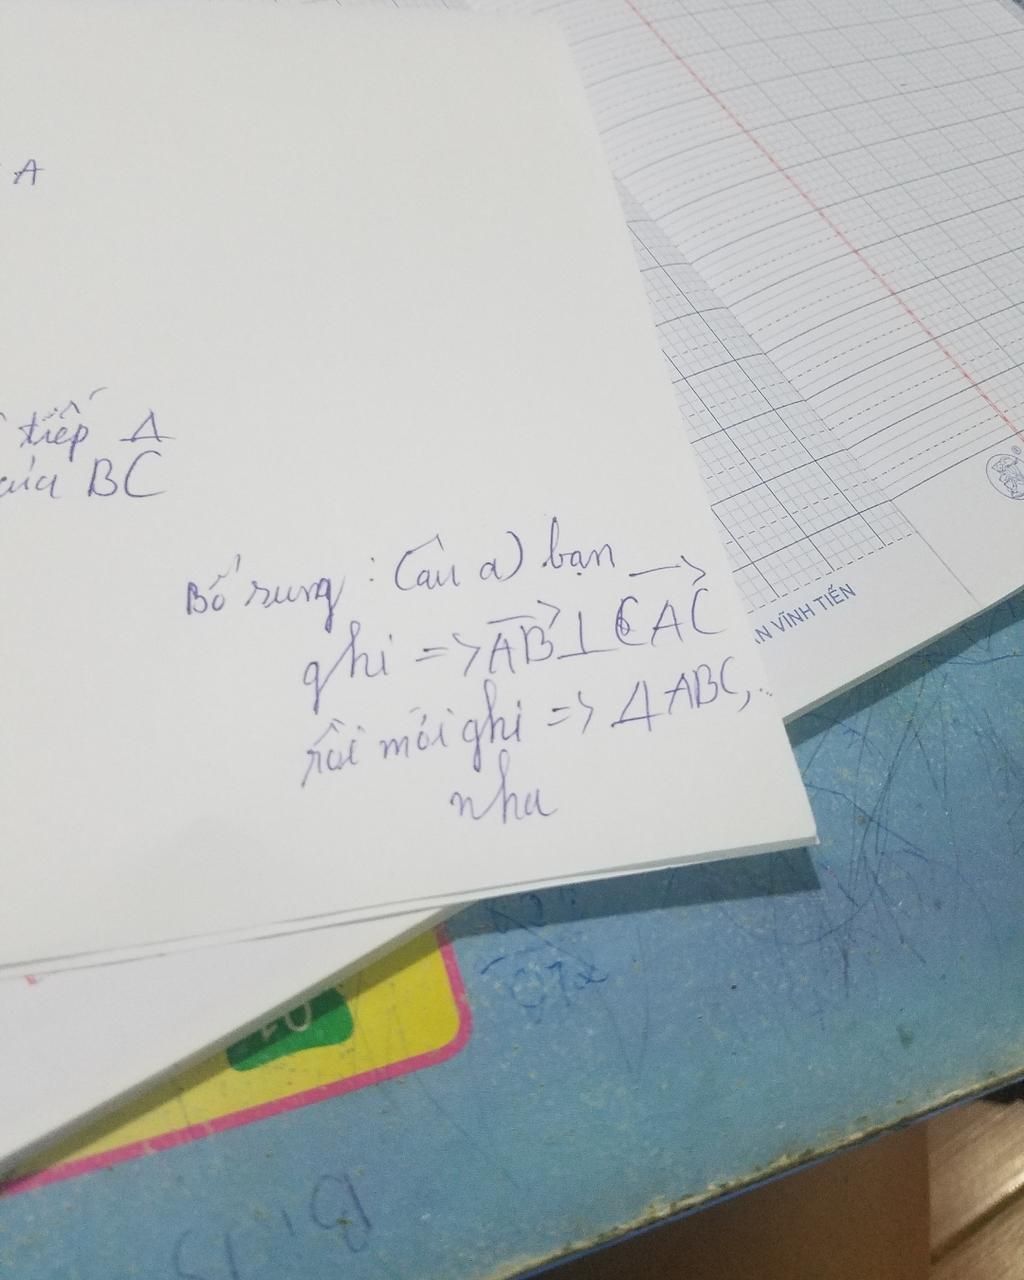 A
tiếp Δ
của BC
Bổ sung : Câu a) bạn
ghi => AB ⊥ AC
rồi mới ghi => Δ ABC,..
nha
VĨNH TIẾN